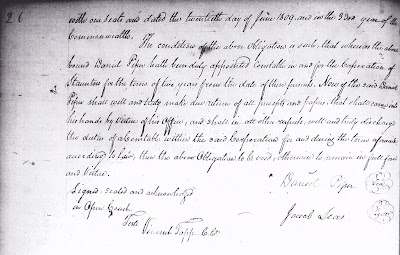 26
with our seals and dated the twentieth day of June 1809, and in the 33rd year of the
Commonwealth.
The condition of the above Obligation is such, that whereas the above
bound Daniel Piper hath been duly appointed Constable in and for the Corporation of
Staunton for the term of two years from the date of these presents. Now if the said Daniel
Piper shall well and truly make due return of all precepts and papers, that shall come into
his hands by Virtue of his Office, and shall in all other respects, well and truly discharge
the duties of a Constable within the said Corporation for and during the term of
according to Law, then the above Obligation to be void, otherwise to remain in full force
and Virtue.
Signed sealed and acknowledged
in Open Court.
Teste
Vincent Tapp C.Ct
Daniel Piper
Jacob Leas